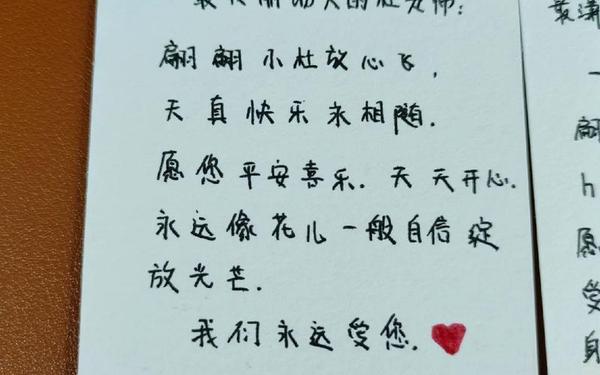 的杜老师:
翩翩小杜放心飞,
天真快乐永相随.
愿您平安喜乐.天天开心.
永远像花儿一般自信绽
放光芒.
我们永远爱您.
最潇
一
翩
h
愿
身